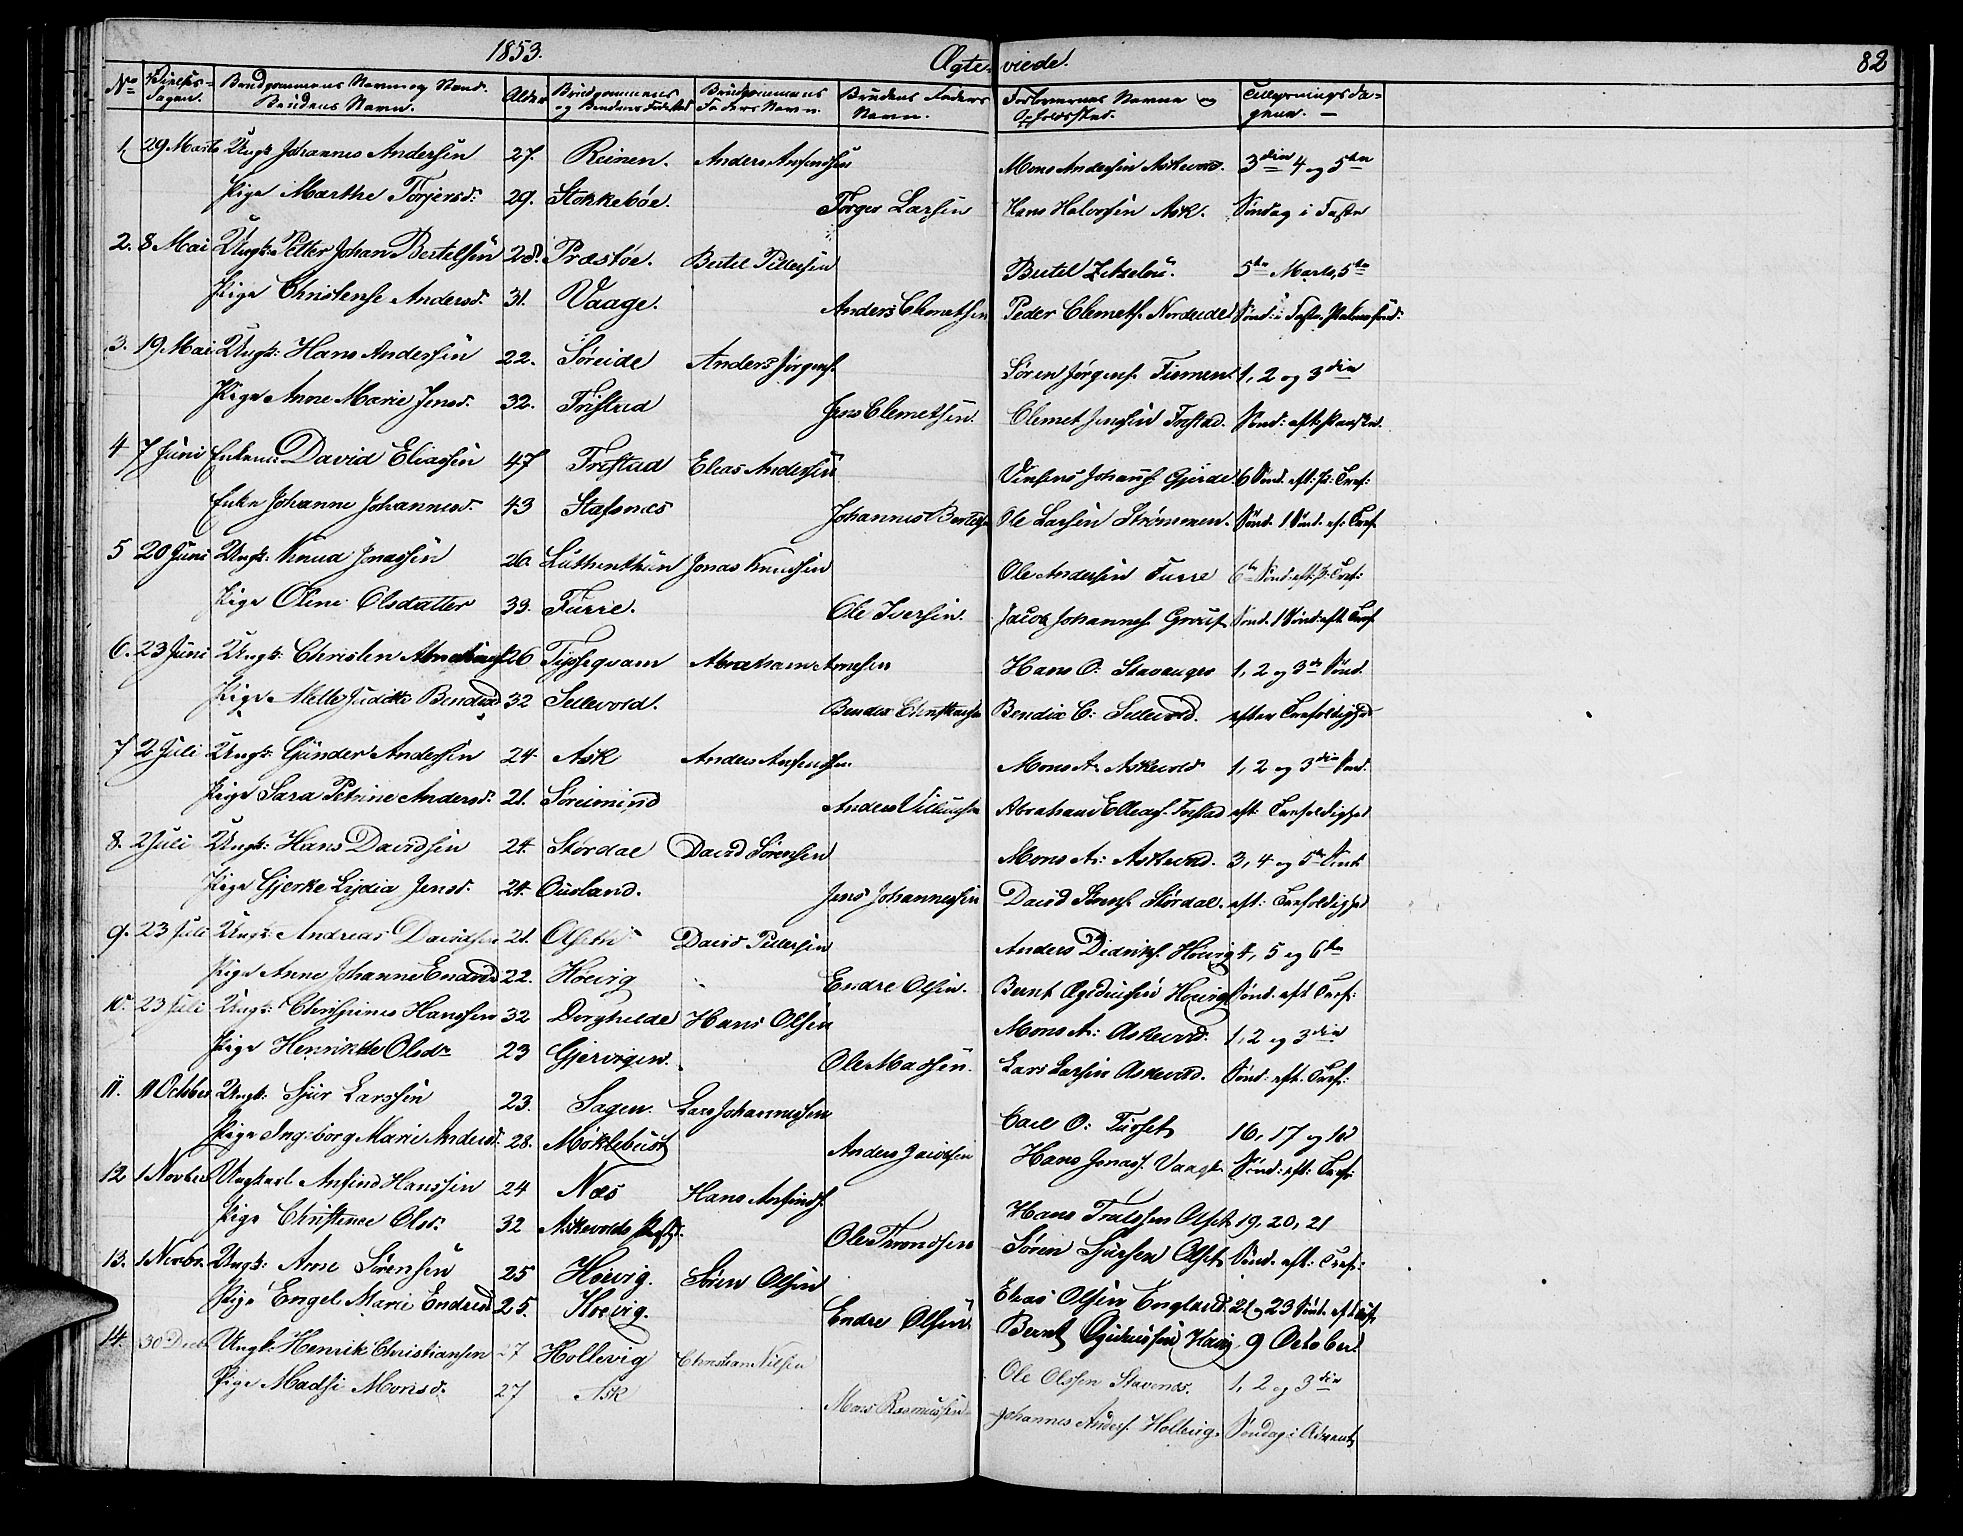 1853. Ægteviede. 82
No Vielses-Dagen. Brudgommens Navn og Stand. Brudens Navn. Alder Brudgommens og Brudens Fødested Brudgommens Faders Navn. Brudens Faders Navn. Forlovernes Navne og Opholdssted. Tillysningsdagene.
1. 29 Marts Ungk: Johannes Andersen 27. Reinen. Anders Ansendsen Mons Andersen Askevold. 3die 4 og 5te
Pige Marthe Torjersd: 29. Stokkebøe. Torger Larsen Hans Halvorsen Ask. Søndag i Faste
2. 8 Mai Ungk: Petter Johan Bertelsen 28. Præstøe. Bertel Pettersen Bertel 5te Marts, 5te
Pige Christense Andersd. 31. Vaage. Anders Clemetsen Peder Clemets. Nordeide Sønd: i Faste Palmesønd:
3. 19 Mai Ungk: Hans Andersen 22. Søreide Anders Jørgens. Søren Jørgens. 1, 2 og 3die
Pige Anne Marie Jensd. 32. Fristad Jens Clemetsen. Clemet Jensen Fristad. Sønd: eft: Paaske.
4 7 Juni Enkem: David Eliassen 47 Fristad Elias Andersen Johans. Gjerde. 6 Sønd. eft: H: Tref:
Enke Johanne Johannesd. 43 Stafsnes Johannes Ole Larsen Strømmen. Sønd. 1 Sønd. ef. Tref.
5 20 Juni Ungk: Knud Jonassen 26. Jonas Knudsen Ole Andersen Furre 6te Sønd: eft: H: Tref:
Pige Oline Olsdatter 33. Furre. Ole Iversen. Jacob Johannes. Sønd. 1 Sønd: eft. Tref
6. 23 Juni Ungk: Christen Abrahams. 26 Tysseqvam Abraham Arnesen Hans O: Stavanger 1, 2 og 3die Sønd.
Pige Mette Judithe Bendixd 32 Sellevold. Bendix Christensen Bendix C: Sellevold. efter Trefoldighed
7 2 Juli Ungk: Gunder Andersen 24. Ask Anders Ansendsen Mons A: Askevold 1, 2 og 3die Sønd.
Pige Sara Petrine Andersd: 21. Anders Abraham Fristad eft: Trefoldighed
8. 2 Juli Ungk: Hans Davidsen 24. Stordal David Sørensen Mons A: Askevold. 3, 4 og 5te Sønd:
Pige Gjerke Lydia Jensd. 24. Ousland. Jens Johannessen David Sørens. Stordal. eft: Trefoldighed
9. 23 Juli Ungk: Andreas Davidsen 21. Olset David Pettersen Anders Didriks. Høivig 4, 5 og 6te
Pige Anne Johanne Endresd 22. Høivig Endre Olsen. Bernt Ægidiussen Høivig Sønd. eft Tref:
10. 23 Juli Ungk: Hanssen 32 Dorghelde Hans Olsen Mons A: Askevold. 1, 2 og 3die
Pige Henrikke Olsdr 23 Gjervigen. Ole Massen. Lars Larsen Askevold. Sønd: eft. Tref:
11. 11 October Ungk: Sjur Larssen 23. Sagen. Lars Johannessen Carl O: Furset 16, 17 og 18
Pige Ingeborg Marie Andersd. 28. Møklebust Anders Hans Jonass. Vaage. Sønd: eft: Tref
12 1 Novber Ungkarl Anfind Hanssen 24 Næs Hans Anfinds. Hans Olset 19, 20, 21
Pige Christence Olsd: 32 Askevolds Ole Trondsen Søren Sjursen Olset Sønd. eft: Tref:
13. 1 Novbr. Ungk: Arne Sørensen 25 Høivig. Søren Olsen Elias Olsen 21 og 23 Sønd. eft Tref.
Pige Engel Marie Endresd 25. Høivig. Endre Olsen. Bernt Ægidiussen Høivig 9 October
14. 30 Decbr Ungk: Henrik Christiansen 27 Hollevig Christian Nilsen Ole Olssen 1, 2 og 3die
Pige Madsi Monsd. 27 Ask Mons Rasmussen Johannes Anders. Hollevig. Søndag i Advent